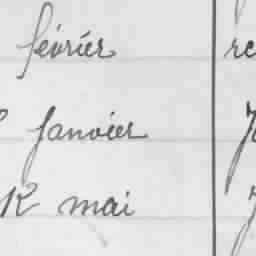 février re
Janvier
12 mai